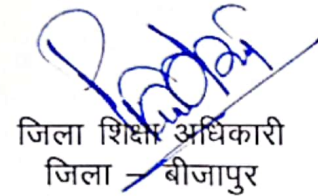 जिला शिक्षा अधिकारी
जिला – बीजापुर